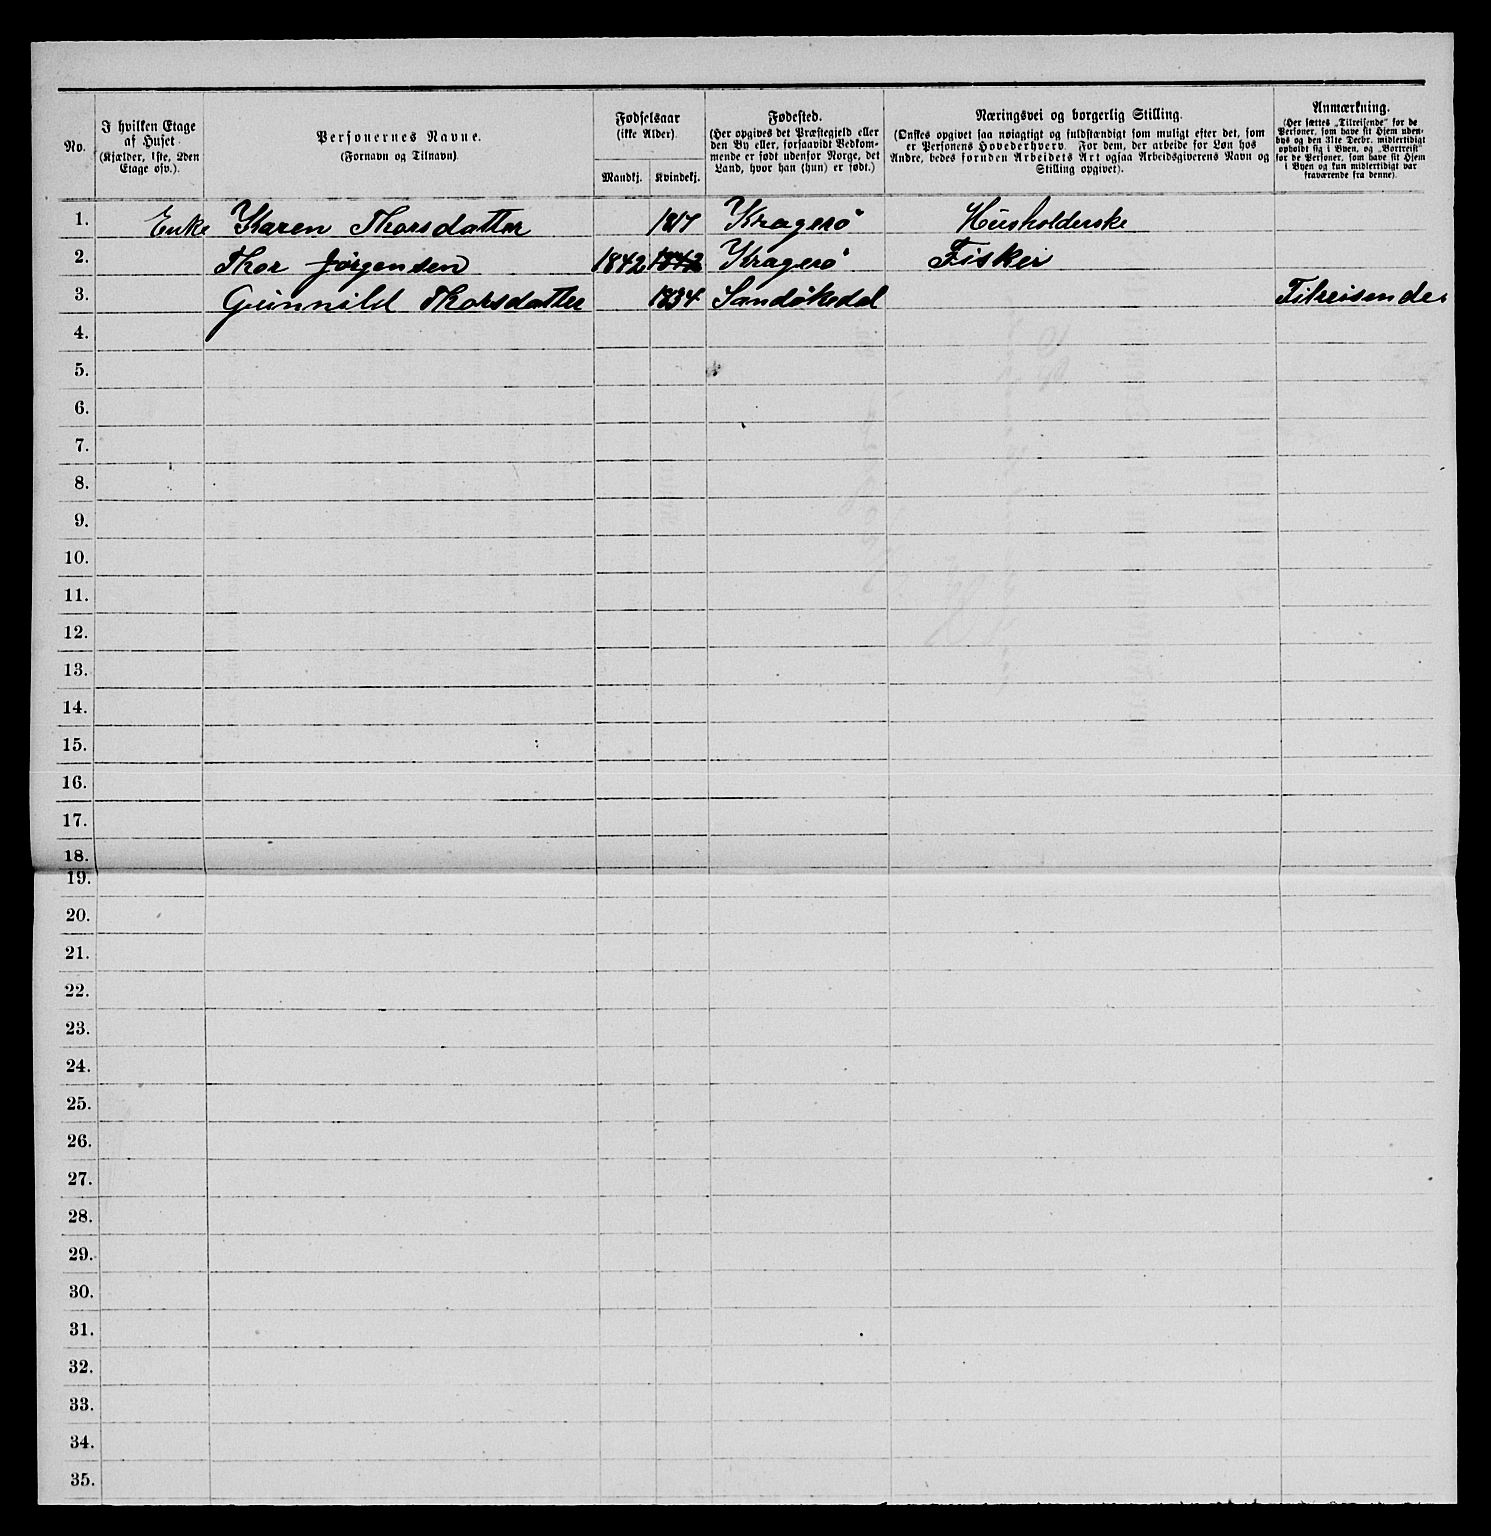 No.
I hvilken Etage
af Huset
(Kjælder, 1ste, 2den
Etage osv.).
Personernes Navne.
(Fornavn og Tilnavn)
Fødselsaar
(ikke Alder)
Mandkj. Kvindekj.
Fødested.
(Her opgives det Præstegjeld eller
den By eller, forsaavidt Vedkom-
mende er født udenfor Norge, det
Land, hvor han (hun) er født.)
Næringsvei og borgerlig Stilling.
(Ønskes opgivet saa nøiagtigt og fuldstændigt som muligt efter det, som
er Personens Hovederhverv. For dem, der arbeide for Løn hos
Andre, bedes foruden Arbeidets Art ogsaa Arbeidsgiverens Navn og
Stilling opgivet).
Anmærkning.
(Her sættes „Tilreisende" for de
Personer, som have sit Hjem uden-
bys og den 31te Decbr. midlertidigt
opholdt sig i Byen, og „Bortreist"
for de Personer, som have sit Hjem
i Byen og kun midlertidigt var
fraværende fra denne).
1. Enke Karen Thorsdatter Kragerø Husholderske
2. Thor Jørgensen 1842 1842 Kragerø Fisker
3. Gunnild Thorsdatter 1834 Sandøkedal Tilreisende
4.
5.
6.
7.
8.
9.
10.
11.
12.
13.
14.
15.
16.
17.
18.
19.
20.
21.
22.
23.
24.
25.
26.
27.
28.
29.
30.
31.
32.
33.
34.
35.